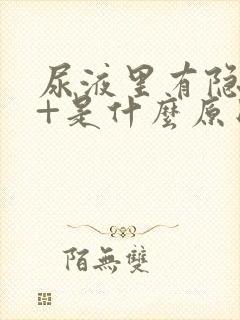 尿液里有隐
+是什麼原
陌無雙